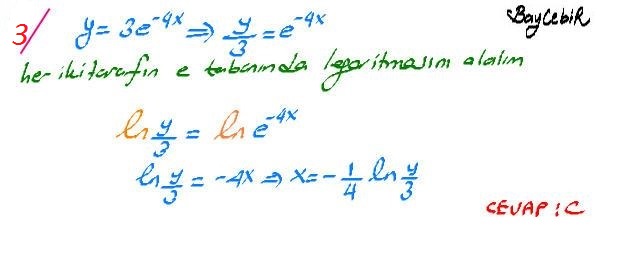 BayCebiR
3/ y = 3e^-4x ⇒ y/3 = e^-4x
her iki tarafın e tabanında logaritmasını alalım
ln y/3 = ln e^-4x
ln y/3 = -4x ⇒ x = - 1/4 ln y/3
CEVAP : C